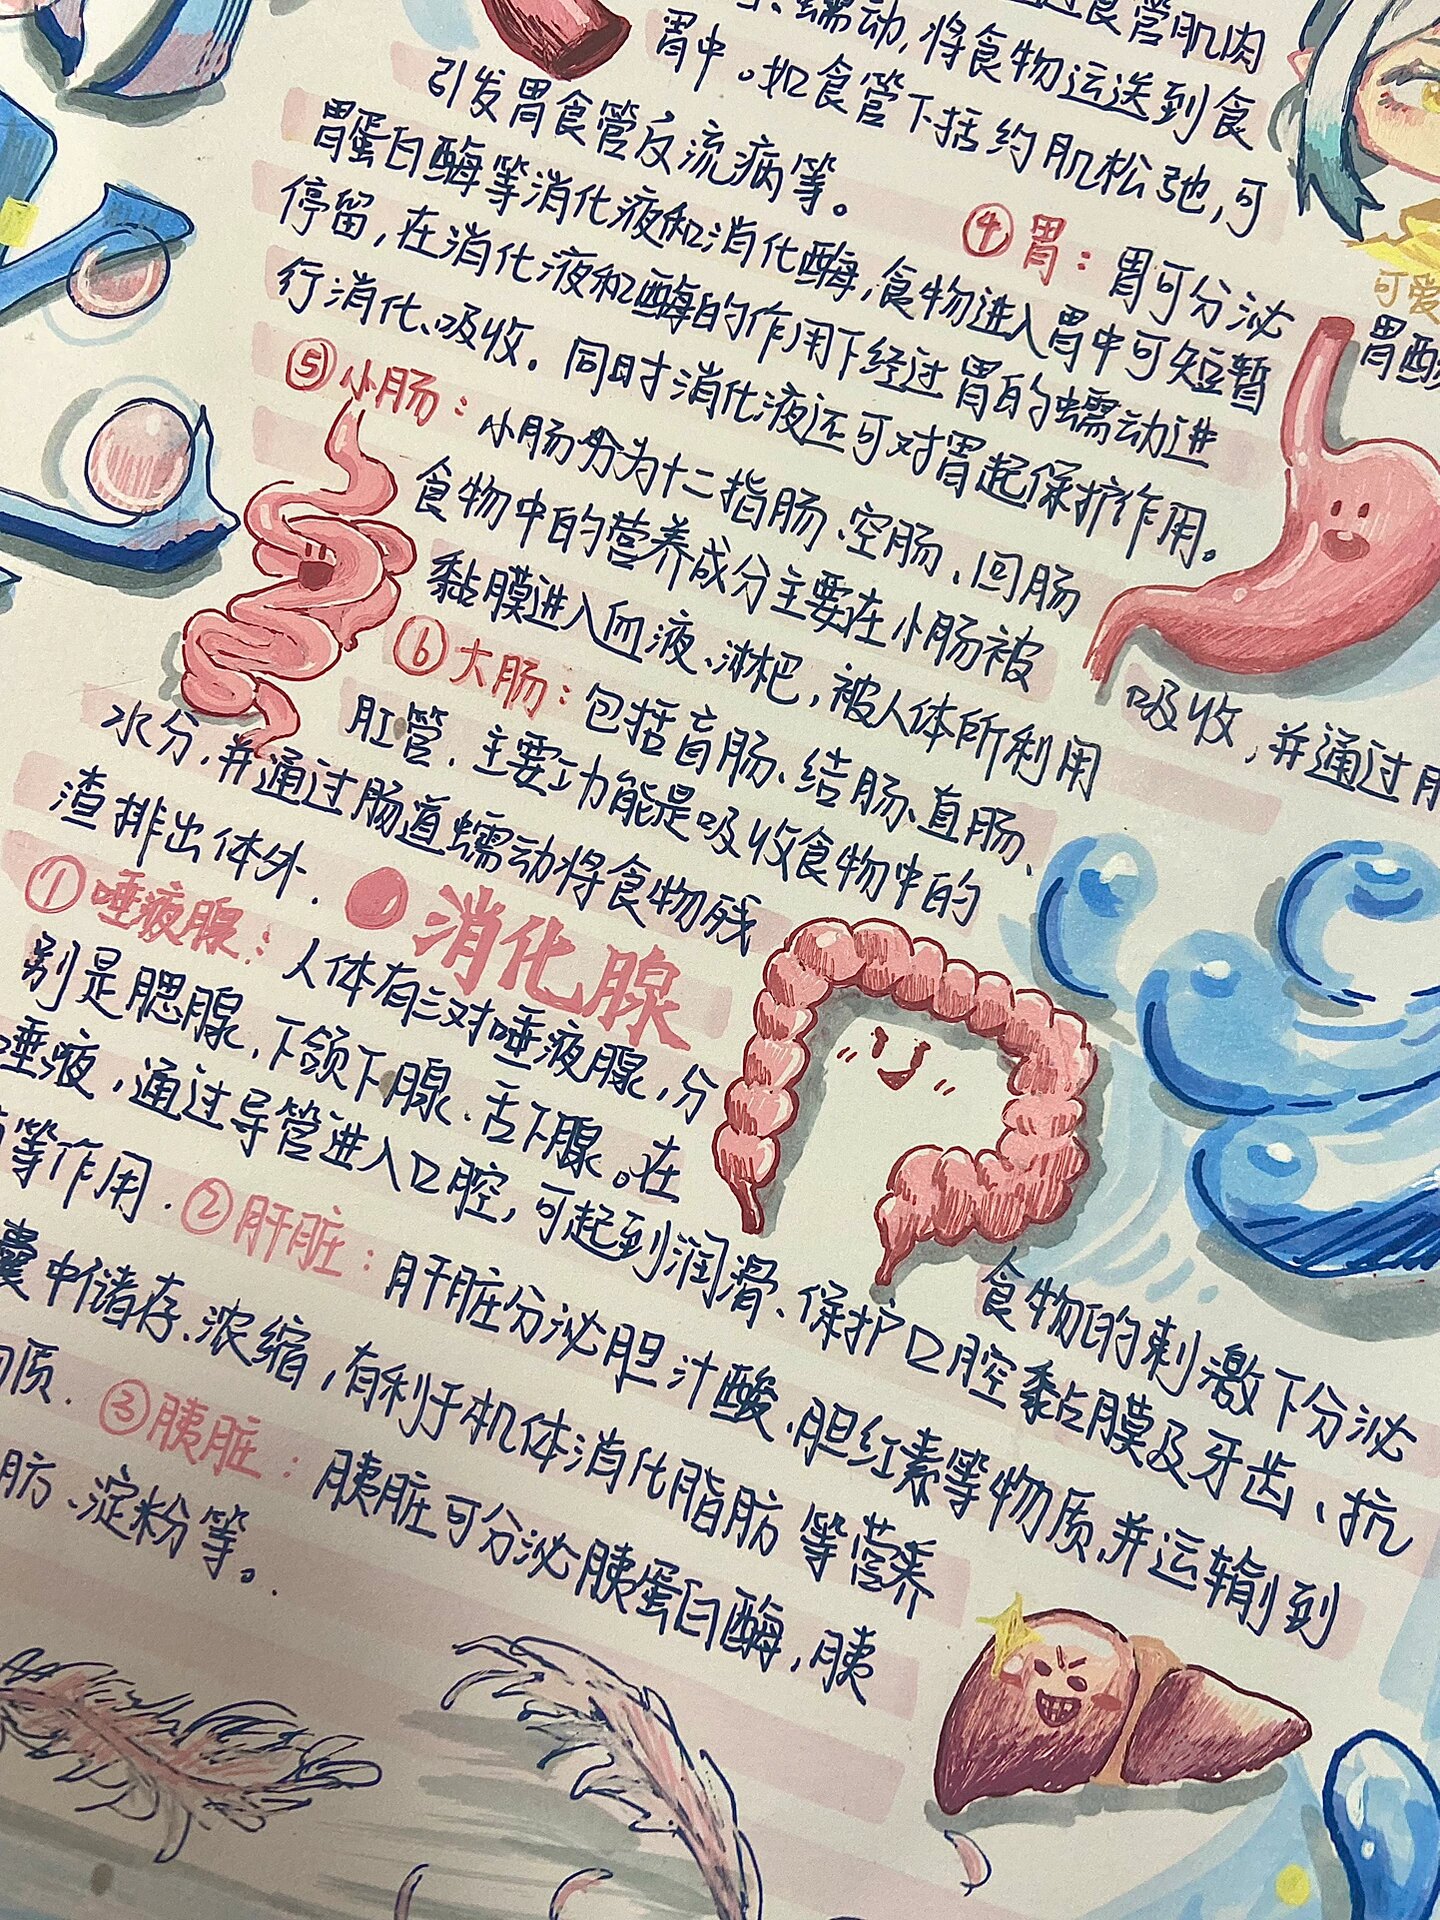 食管肌肉
蠕动,将食物运送到食
胃中。如食管下括约肌松弛,可
引发胃食管反流病等。
④胃:胃可分泌
胃酸
可爱
胃蛋白酶等消化液和消化酶,食物进入胃中可短暂
停留,在消化液和酶的作用下经过胃的蠕动进
行消化、吸收。同时消化液还可对胃起保护作用。
⑤小肠:小肠分为十二指肠、空肠、回肠
食物中的营养成分主要在小肠被
吸收,并通过
黏膜进入血液、淋杷,被人体所利用
⑥大肠:包括盲肠、结肠、直肠、
肛管.主要功能是吸收食物中的
水分,并通过肠道蠕动将食物残
渣排出体外.
消化腺
①唾液腺:人体有三对唾液腺,分
别是腮腺、下颌下腺、舌下腺。在
食物的刺激下分泌
唾液,通过导管进入口腔,可起到润滑、保护口腔黏膜及牙齿、抗
等作用.
②肝脏:肝脏分泌胆汁酸、胆红素等物质,并运输到
囊中储存、浓缩,有利于机体消化脂肪等营养
质.
③胰脏:胰脏可分泌胰蛋白酶,胰
肪、淀粉等。